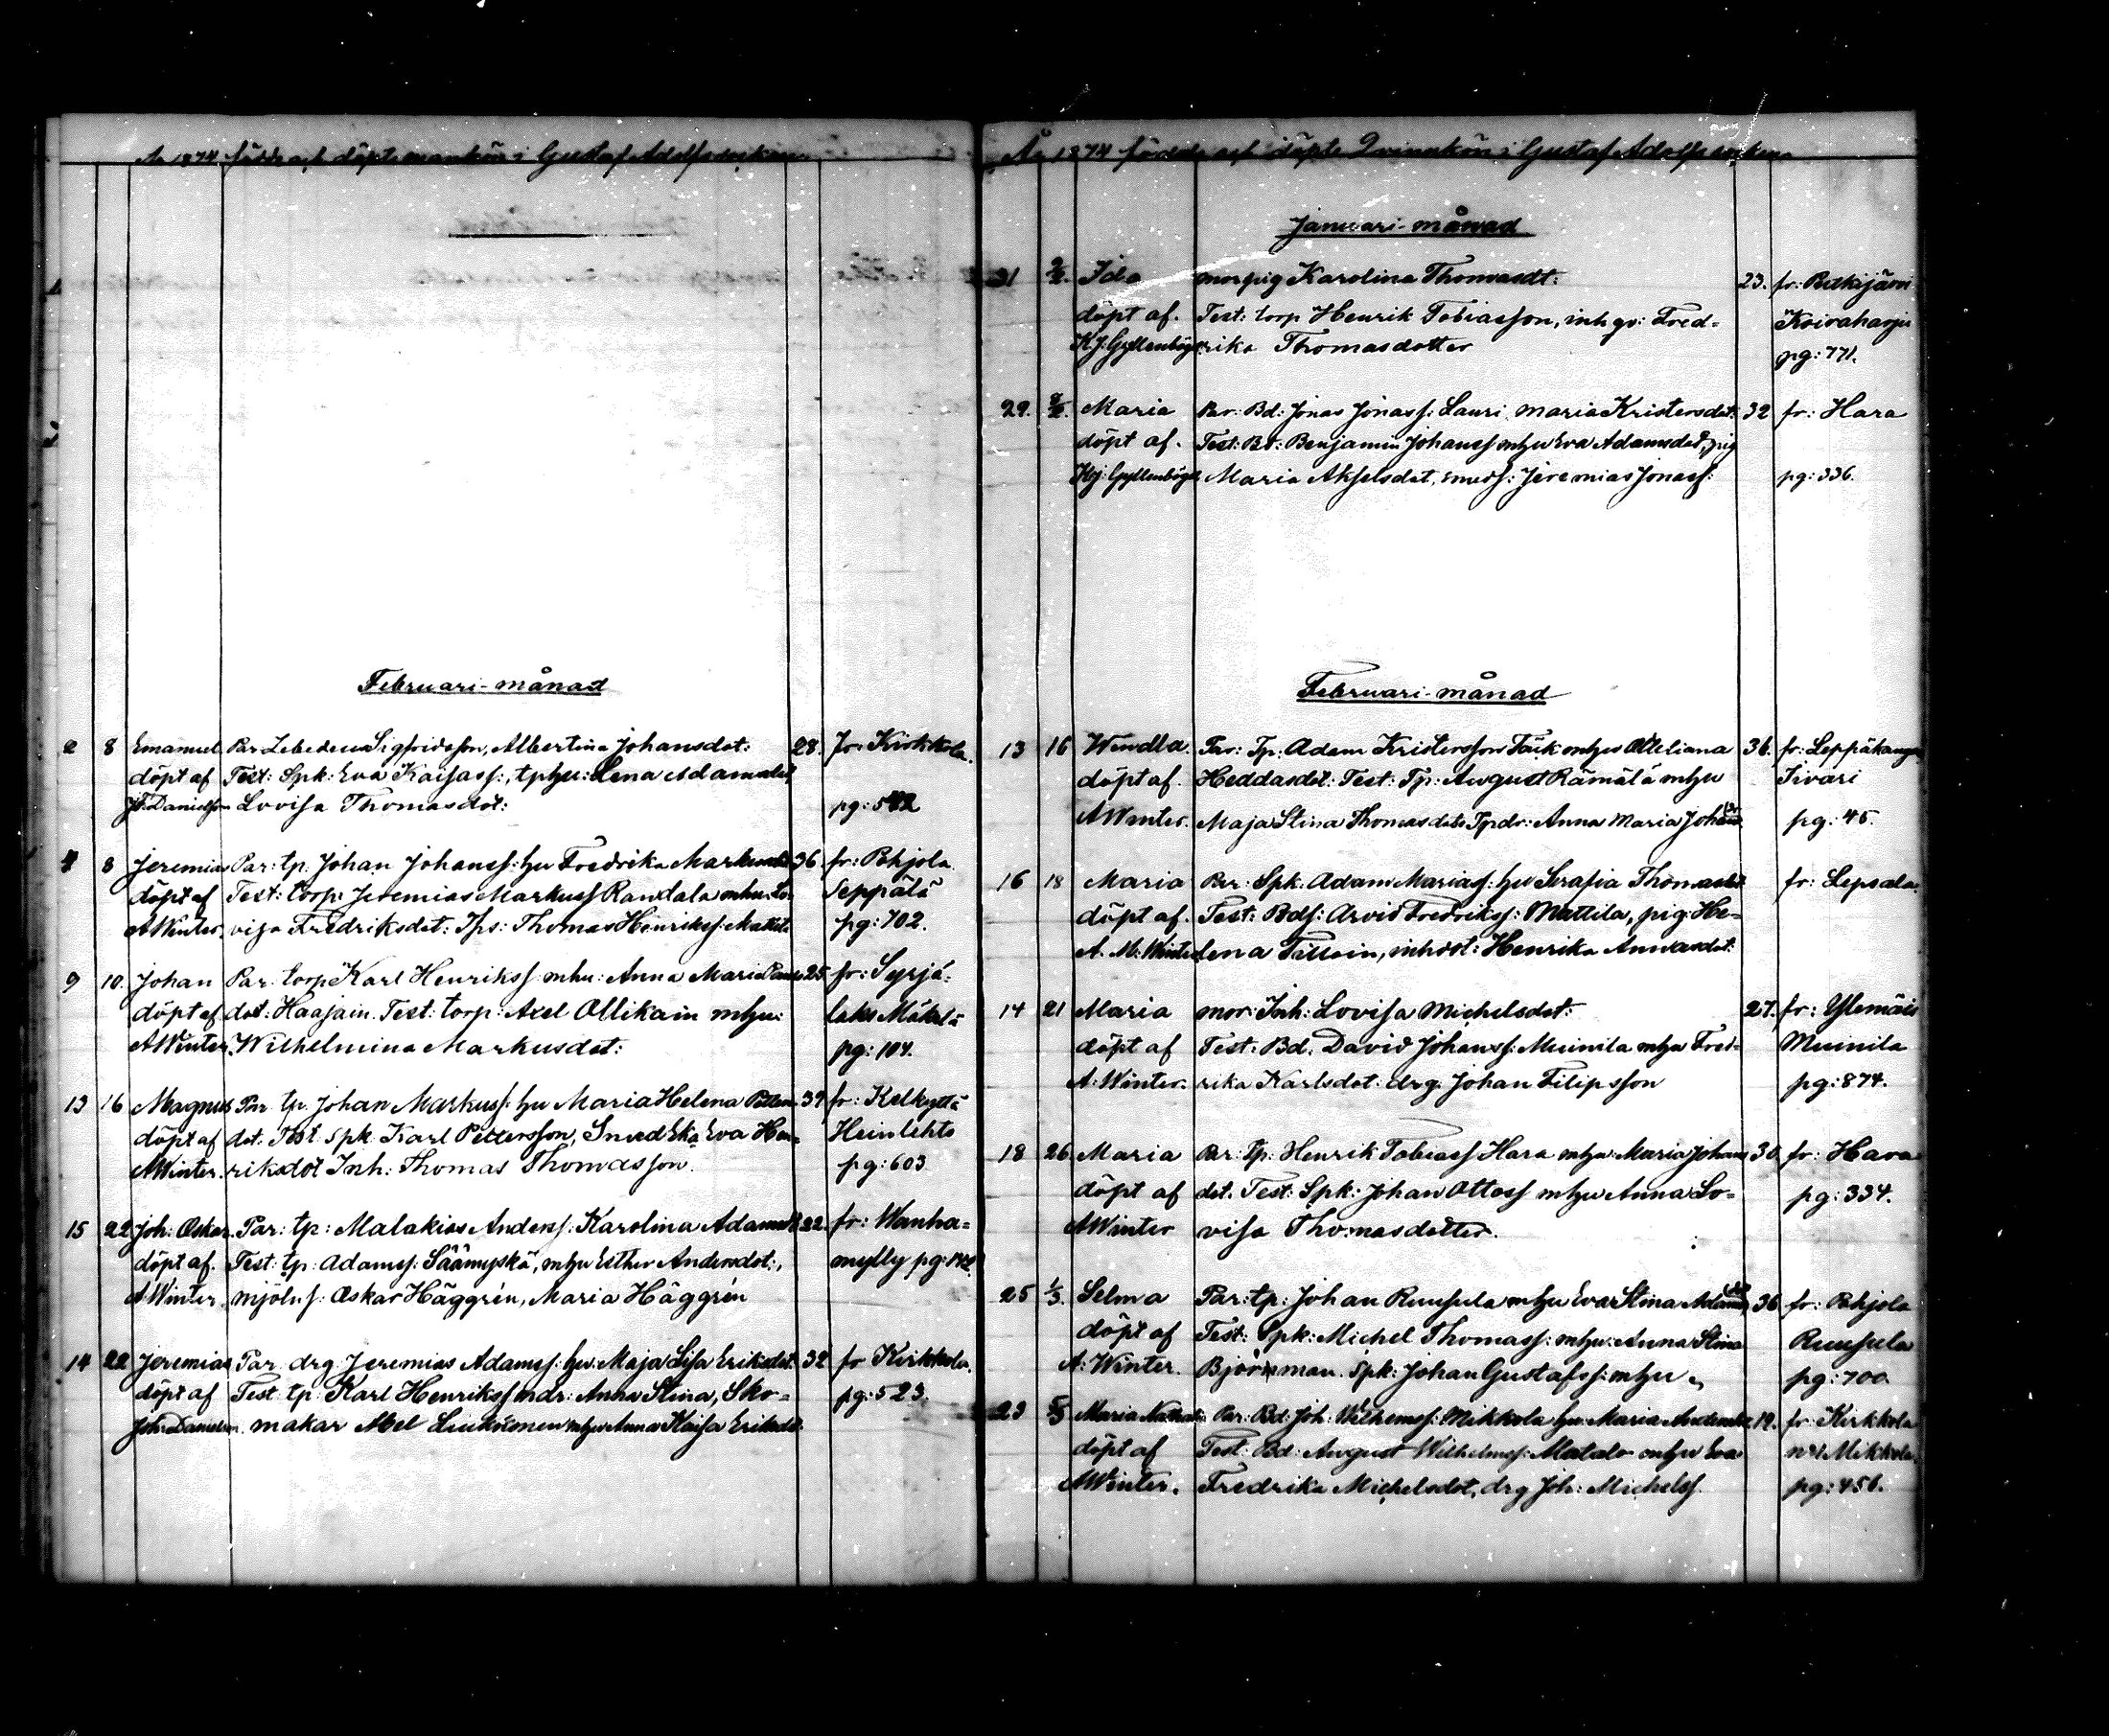 År 1874 födde och döpte mankön i Gustaf Adolfs socken
Februari-månad
2 8 Emanuel Par Zebedeus Sigfridsson, Albertina Johansdot: 28. fr: Kirkkola.
döpt af Test: Spk: Eva Kaisass:, tphu: Lena Adamsdot,
Danielson Lovisa Thomasdot: pg: 542
4 8 Jeremias Par: tp. Johan Johanss: hu Fredrika Markusdt 36 fr: Pohjola
döpt af Test: torp: Jeremias Markuss Randala mhu: Lo- Seppälä
A Winter. visa Fredriksdot: Tps: Thomas Henrikss: Mattila pg: 702.
9 10. Johan Par. torp Karl Henrikss mhu: Anna Maria Pauls 25 fr: Syrjä-
döpt af dot: Haajain. Test: torp: Axel Ollikain mhu: laks Mäkelä
A Winter. Wilhelmina Markusdot: pg: 104.
13 16 Magnus Par tp. Johan Markuss: hu Maria Helena Petters 39 fr: Kelkyttä
döpt af dot. Test Spk Karl Pettersson, Smed Eka Eva Hen- Heinlehto
A Winter. riksdot Inh: Thomas Thomasson. pg: 603
15 22 Joh: Oskar. Par: tp: Malakias Anderss: Karolina Adamsdt 22. fr: Wanha-
döpt af. Test: tp: Adamss: Säämyskä, mhu Esther Andersdot:, mylly pg: 142
A Winter mjölns: Oskar Häggrén, Maria Häggrén
14 22 Jeremias Par drg Jeremias Adamss: hu: Maja Lisa Eriksdot. 32 fr Kirkkola.
döpt af Test tp: Karl Henrikss mdr: Anna Stina, Sko- pg: 523.
Joh: Danielson. makar Abel Liukkonen mhu Anna Kaisa Eriksdt.
År 1874 födde och döpte Qvinnkön i Gustaf Adolfs socken
Januari-månad
31 2/2. Ida mor pig Karolina Thomasdt: 23. fr: Pitkäjärvi
döpt af. Test: torp Henrik Tobiasson, inh gv: Fred- Koivaharju
Kj: Gyllenbögel rika Thomasdotter pg: 771.
29. 8/2. Maria Par: Bd: Jonas Jonass: Lauri Maria Kristersdot: 32 fr: Hara
döpt af. Test: Bd: Benjamin Johanss mhu Eva Adamsdot, pig
Kj: Gyllenbögel Maria Akselsdot, smeds: Jeremias Jonass: pg: 336.
Februari-månad
13 16 Wendla. Par: Tp. Adam Kristersson Täck mhu Ottiliana 36. fr: Leppäkanga
döpt af. Heddasdot: Test: Tp: August Rämälä mhu Iivari
A Winter. Maja Stina Thomasdot: Tpdr: Anna Maria Johans dr pg: 45.
16 18 Maria Par: Spk. Adam Mariass: hu Serafia Thomasdt fr: Lepsala.
döpt af. Test: Bds: Arvid Fredrikss: Mattila, pig: He-
A. M: Winter lena Tilloin, inhdot: Henrika Annasdot:
14 21 Maria mor: Inh: Lovisa Michelsdot: 27. fr: Ylemäis
döpt af Test: Bd. David Johanss: Muinila mhu Fred- Muinila
A: Winter. rika Karlsdot: drg. Johan Filipsson pg: 874.
18 26. Maria Par: tp: Henrik Tobiass Hara mhu: Maria Johans 30. fr: Hara
döpt af dot. Test: Spk: Johan Ottoss mhu Anna Lo- pg: 334.
A Winter visa Thomasdotter.
25 1/3. Selma Par: tp: Johan Ruusula mhu Eva Stina Adams dot 36 fr: Pohjola
döpt af Test: Spk: Michel Thomass: mhu: Anna Stina Ruusula
A: Winter. Björkman. Spk: Johan Gustafss: mhu „ pg: 700.
23 /3 Maria Natalia Par: Bd: Joh: Wilhemss: Mikkola hu Maria Andersdt 19. fr: Kirkkola
döpt af Test: Bd: August Wilhelmss: Matala mhu Eva No 1 Mikkola
A Winter. Fredrika Michelsdot, drg Joh: Michelss. pg: 456.